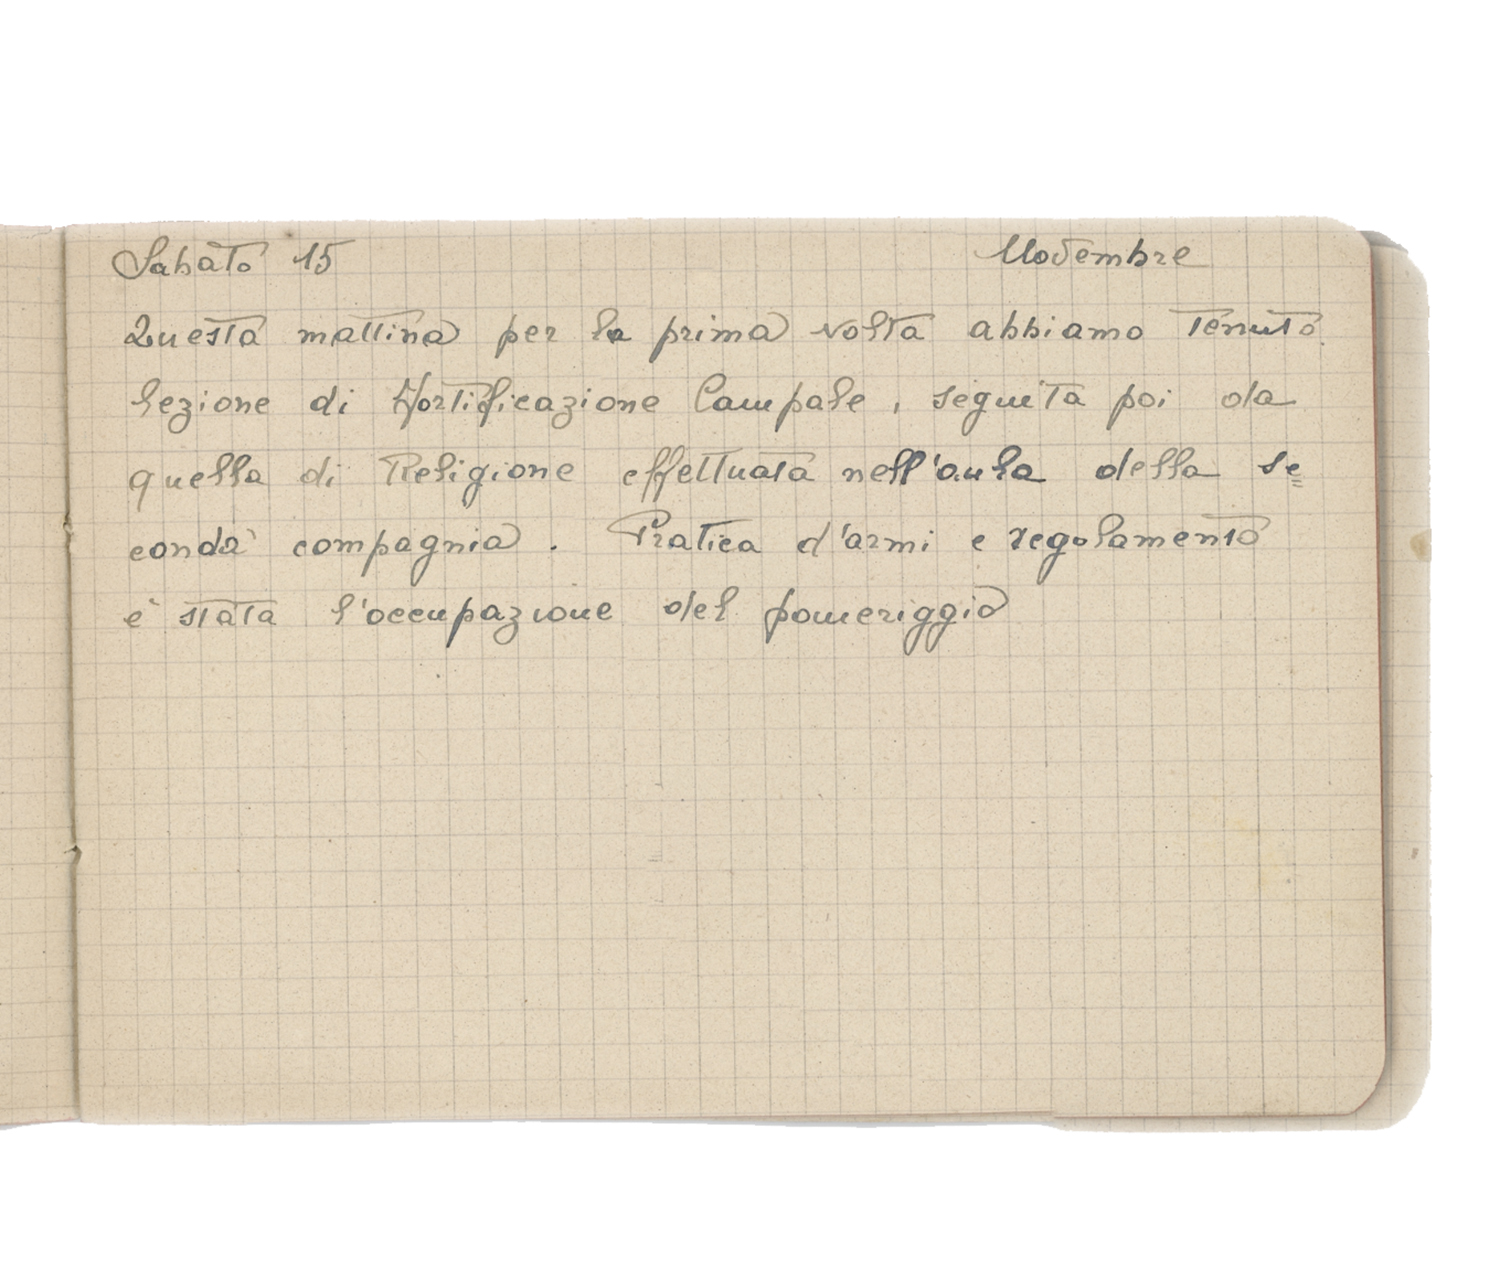 Sabato 15 Novembre
Questa mattina per la prima volta abbiamo tenuto
lezione di Fortificazione Campale, seguita poi da
quella di Religione effettuata nell'aula della se=
conda compagnia. Pratica d'armi e regolamento
è stata l'occupazione del pomeriggio